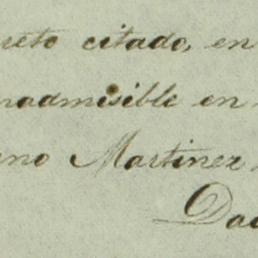 reto citado, en
nadmisible en
no Martinez
Da